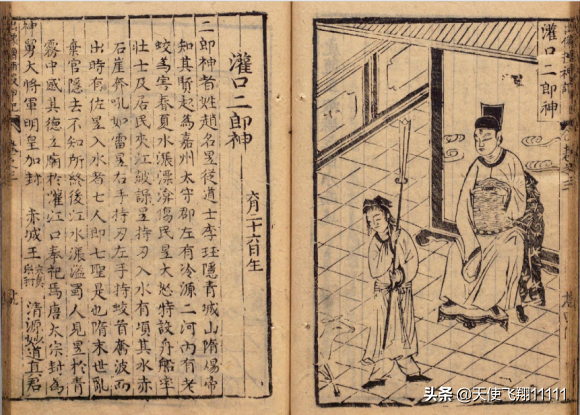 灌口二郎神
灌口二郎神
六月二十六日生
二郎神者姓趙名昱從道士李珏隱青城山隋煬帝
知其賢起為嘉州太守郡左有冷源二河內有老
蛟為害春夏水漲漂渰傷民昱大怒特設舟船率
壯士及居民夾江鼓譟昱持刃入水有頃其水赤
石崖奔吼如雷昱右手持刃左手持蛟首奮波而
出時有佐昱入水者七人即七聖是也隋末世亂
棄官隱去不知所終後江水漲溢蜀人見昱於青
霧中感其德立廟於灌江口奉祀焉唐太宗封為
神勇大將軍明皇加封 赤城王 清源妙道真君
头条 @天使飞翔11111